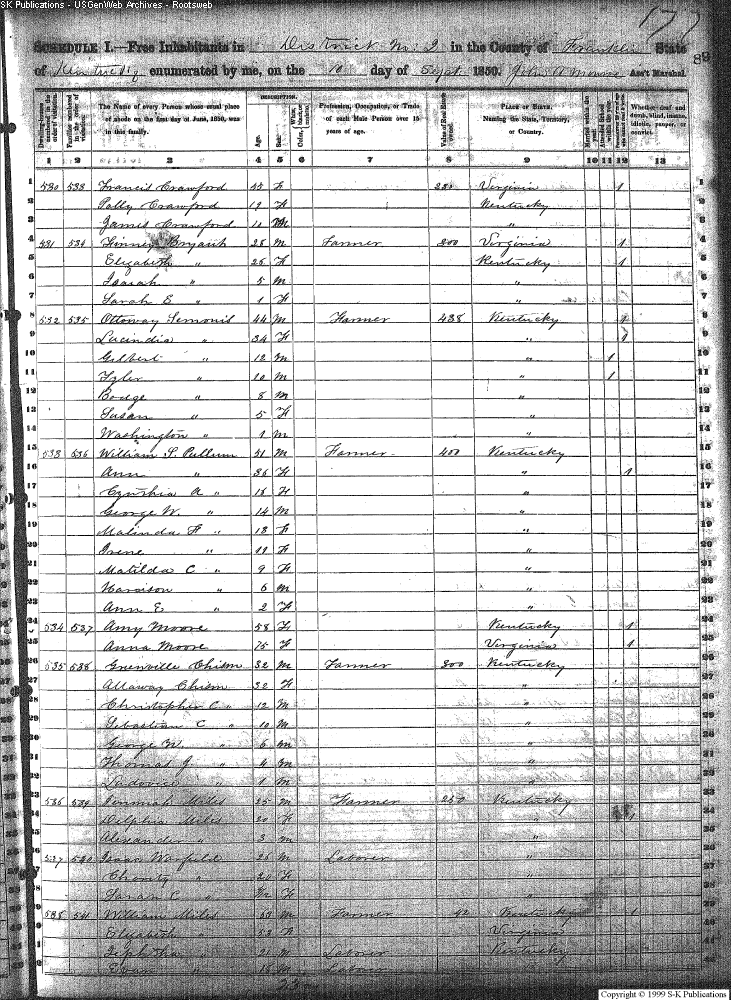 SK Publications - USGenWeb Archives - Rootsweb
177
89
SCHEDULE I.—Free Inhabitants in District No. 2 in the County of Franklin State
of Kentucky enumerated by me, on the 10 day of Sept 1850. Ass't Marshal.
DESCRIPTION.
The Name of every Person whose usual place of abode on the first day of June, 1850, was in this family.
Age.
Sex.
Profession, Occupation, or Trade of each Male Person over 15 years of age.
Value of Real Estate owned.
PLACE OF BIRTH. Naming the State, Territory, or Country.
Whether deaf and dumb, blind, insane, idiotic, pauper, or convict.
1 2 3 4 5 6 7 8 9 10 11 12 13
1 530 533 Francis Crawford F Virginia 1
2 Polly Crawford 19 F Kentucky
3 James Crawford 11 M "
4 531 534 28 M Farmer 200 Virginia 1
5 Elizabeth " 25 F Kentucky 1
6 Isaiah " 5 M "
7 Sarah E " 1 F "
8 532 535 Ottoway Semonis 44 M Farmer 438 Kentucky 1
9 Lucindia " 34 F " 1
10 Gilbert " 12 M " 1
11 Tyler " 10 M " 1
12 " 8 M "
13 Susan " 5 F "
14 Washington " 1 M "
15 533 536 William S. Pullum 51 M Farmer 400 Kentucky
16 Ann " 36 F " 1
17 Cynthia A " F "
18 George W. " 14 M "
19 Malinda F " F "
20 Irene " 11 F "
21 Matilda C " 9 F "
22 Harrison " 6 M "
23 Ann E " 2 F "
24 534 537 Amy Moore 58 F Kentucky 1
25 Anna Moore 75 F Virginia 1
26 535 538 Grenville Chism 32 M Farmer 300 Kentucky
27 Attaway Chism 32 F "
28 Christopher C " 12 M "
29 Sebastian C " 10 M "
30 George W. " 6 M "
31 Thomas J. " 4 M "
32 " 1 M "
33 536 539 Miles 25 M Farmer 250 Kentucky
34 Delphia Miles 20 F " 1
35 Alexander " 3 M "
36 537 540 Isaac Warfield 26 M Laborer "
37 Charity " 20 F "
38 Sarah C " F "
39 538 541 William Miles 53 M Farmer Kentucky 1
40 Elizabeth 52 F Virginia
41 21 M Laborer Kentucky
42 M Laborer
Copyright © 1999 S-K Publications